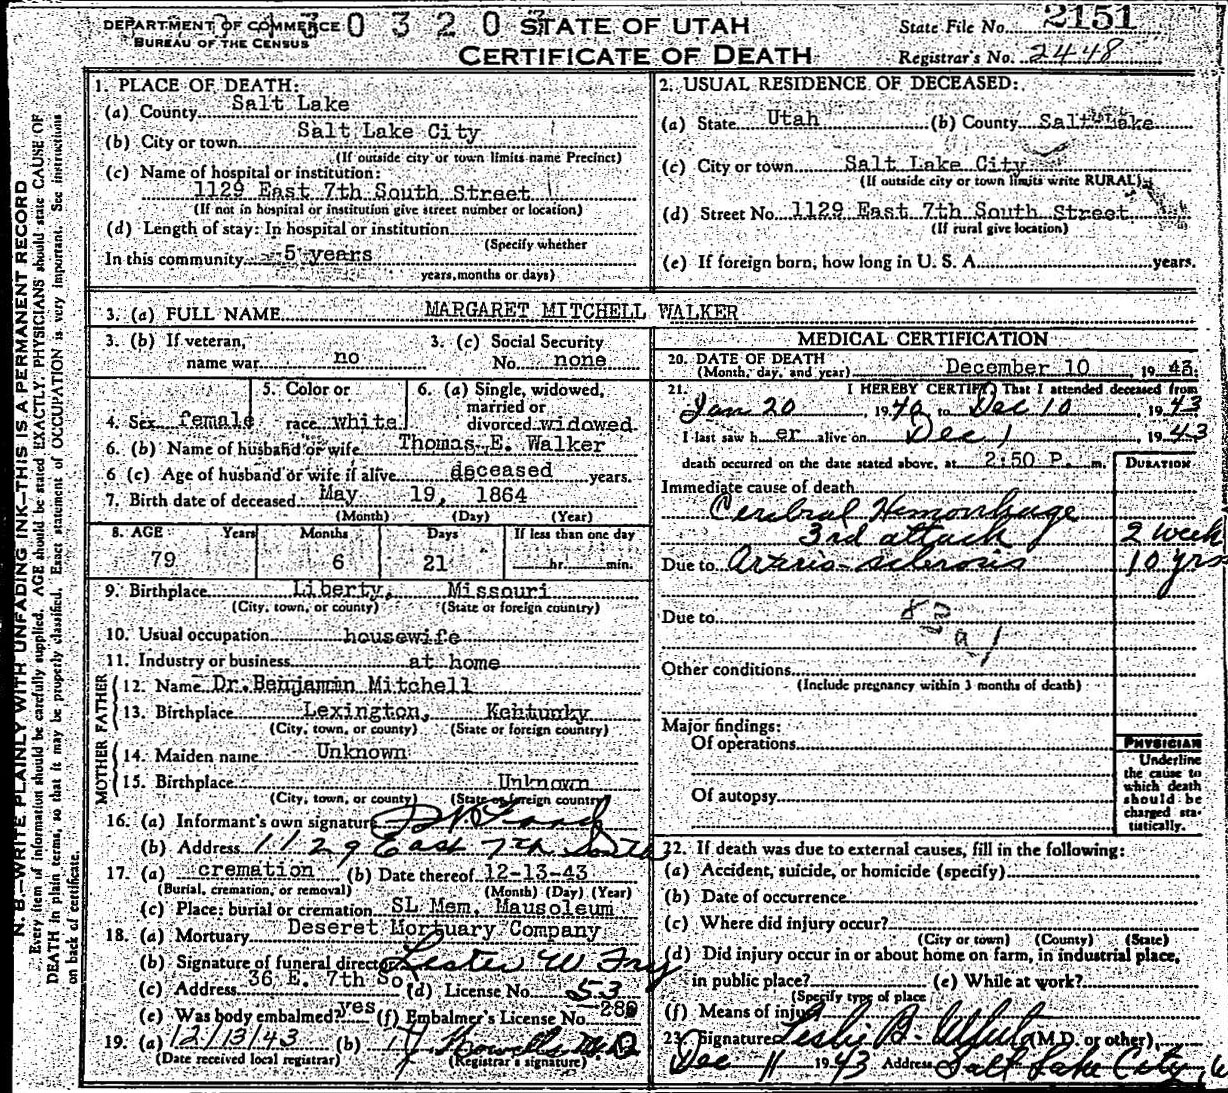 DEPARTMENT OF COMMERCE
BUREAU OF THE CENSUS
0 3 2 0
STATE OF UTAH
CERTIFICATE OF DEATH
State File No. 2151
Registrar's No. 2448
N. B.—WRITE PLAINLY WITH UNFADING INK—THIS IS A PERMANENT RECORD
Every item of information should be carefully supplied. AGE should be stated EXACTLY. PHYSICIANS should state CAUSE OF
DEATH in plain terms, so that it may be properly classified. Exact statement of OCCUPATION is very important. See instructions
on back of certificate.
1. PLACE OF DEATH:
(a) County Salt Lake
(b) City or town Salt Lake City
(If outside city or town limits name Precinct)
(c) Name of hospital or institution:
1129 East 7th South Street
(If not in hospital or institution give street number or location)
(d) Length of stay: In hospital or institution
(Specify whether
In this community 5 years
years, months or days)
2. USUAL RESIDENCE OF DECEASED:
(a) State Utah (b) County Salt Lake
(c) City or town Salt Lake City
(If outside city or town limits write RURAL)
(d) Street No. 1129 East 7th South Street
(If rural give location)
(e) If foreign born, how long in U. S. A. years.
3. (a) FULL NAME MARGARET MITCHELL WALKER
3. (b) If veteran,
name war no
3. (c) Social Security
No. none
4. Sex female
5. Color or
race white
6. (a) Single, widowed,
married or
divorced widowed
6. (b) Name of husband or wife Thomas E. Walker
6 (c) Age of husband or wife if alive deceased years.
7. Birth date of deceased May 19, 1864
(Month) (Day) (Year)
8. AGE Years Months Days If less than one day
79 6 21 hr. min.
9. Birthplace Liberty, Missouri
(City, town, or county) (State or foreign country)
10. Usual occupation housewife
11. Industry or business at home
FATHER
12. Name Dr. Benjamin Mitchell
13. Birthplace Lexington, Kentucky
(City, town, or county) (State or foreign country)
MOTHER
14. Maiden name Unknown
15. Birthplace Unknown
(City, town, or county) (State or foreign country)
16. (a) Informant's own signature
(b) Address 1129 East 7th South
17. (a) cremation (b) Date thereof 12-13-43
(Burial, cremation, or removal) (Month) (Day) (Year)
(c) Place: burial or cremation SL Mem. Mausoleum
18. (a) Mortuary Deseret Mortuary Company
(b) Signature of funeral director Lester W Fry
(c) Address 36 E. 7th So. (d) License No. 53
(e) Was body embalmed? yes (f) Embalmer's License No.
19. (a) 12/13/43 (b)
(Date received local registrar) (Registrar's signature)
MEDICAL CERTIFICATION
20. DATE OF DEATH
(Month, day, and year) December 10 , 19 43.
21. I HEREBY CERTIFY That I attended deceased from
Jan 20 , 1940 to Dec 10 , 1943
I last saw h er alive on Dec 1 , 1943
death occurred on the date stated above, at 2:50 P. m.
DURATION
Immediate cause of death
Cerebral Hemorrhage
3rd attack 2 week
Due to Arterio-sclerosis 10 yrs
Due to
Other conditions
(Include pregnancy within 3 months of death)
Major findings:
Of operations
Of autopsy
PHYSICIAN
Underline
the cause to
which death
should be
charged sta-
tistically.
22. If death was due to external causes, fill in the following:
(a) Accident, suicide, or homicide (specify)
(b) Date of occurrence
(c) Where did injury occur?
(City or town) (County) (State)
(d) Did injury occur in or about home on farm, in industrial place,
in public place? (e) While at work?
(Specify type of place
(f) Means of injury
23. Signature Leslie B. (M.D. or other)
Dec 11 1943 Address Salt Lake City,